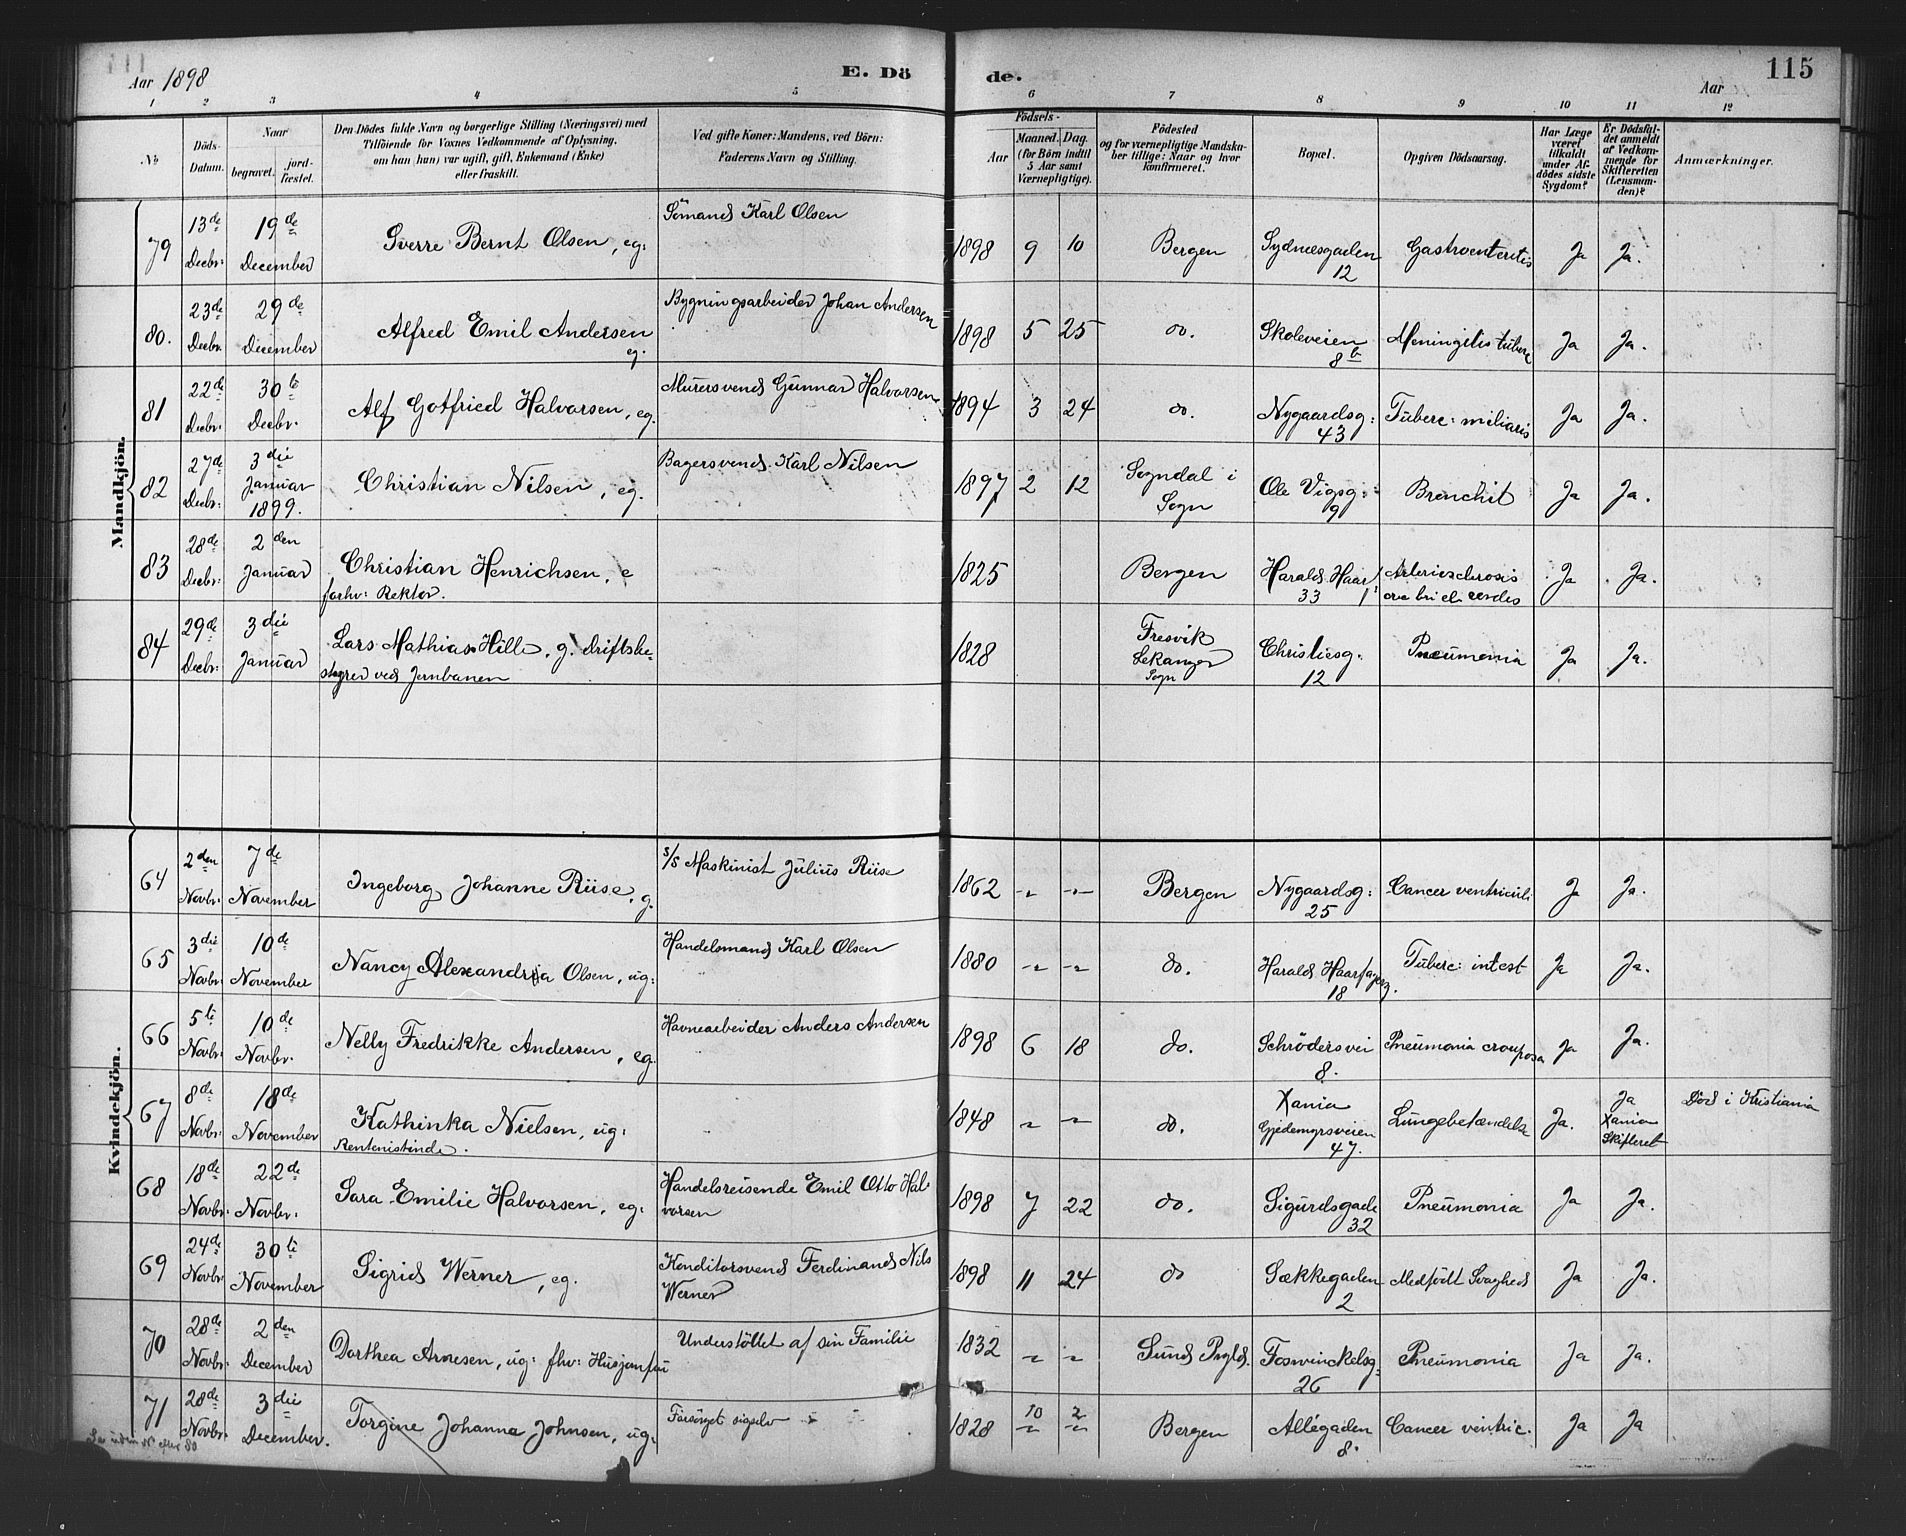 Aar 1898
E. Dö
de.
115
Aar
1 2 3 4 5 6 7 8 9 10 11 12
No
Döds-
Datum.
Naar
begravet.
jord-
fæstet.
Den Dödes fulde Navn og borgerlige Stilling (Næringsvei) med
Tilföiende for Voxnes Vedkommende af Oplysning,
om han (hun) var ugift, gift, Enkemand (Enke)
eller fraskilt.
Ved gifte Koner: Mandens, ved Börn:
Faderens Navn og Stilling.
Födsels-
Aar
Maaned. Dag.
(for Börn indtil
5 Aar samt
Værnepligtige).
Födested
og for værnepligtige Mandska-
ber tillige: Naar og hvor
konfirmeret.
Bopæl.
Opgiven Dödsaarsag.
Har Læge
været
tilkaldt
under Af-
dödes sidste
Sygdom?
Er Dödsfal-
det anmeldt
af Vedkom-
mende for
Skifteretten
(Lensman-
den)?
Anmærkninger.
Mandkjön.
79 13de Decbr: 19de December Sverre Bernt Olsen, eg: Sömand Karl Olsen 1898 9 10 Bergen Sydnæsgaden 12 Gastroenteritis Ja Ja.
80. 23de Decbr. 29de December Alfred Emil Andersen eg. Bygningsarbeider Johan Andersen 1898 5 25 do. Skoleveien 8b Meningitis tuberc Ja Ja.
81 22de Decbr: 30te Decbr. Alf Gotfried Halvorsen, eg. Murersvend Gunnar Halvorsen 1894 3 24 do. Nygaardsg: 43 Tuberc: miliaris Ja Ja.
82 27de Decbr: 3die Januar 1899. Christian Nilsen, eg. Bagersvend Karl Nilsen 1897 2 12 Sogndal i Sogn Ole Vigsg: 9 Bronchit Ja Ja.
83 28de Decbr: 2den Januar Christian Henrichsen, e
forhv: Rektor. 1825 Bergen Harald Haarf: 33 Arteriesclerosis Ja Ja.
84 29de Decbr: 3die Januar Lars Mathias Hille, g. driftsbe-
styrer ved Jernbanen 1828 Fresvik Lekanger Sogn Christiesg. 12 Pneumonia Ja Ja.
Kvindekjön.
64 2den Novbr: 7de November Ingeborg Johanne Riise, g. s/s Maskinist Julius Riise 1862 Bergen Nygaardsg: 25 Cancer ventriculi Ja Ja.
65 3die Novbr: 10de November Nancy Alexandria Olsen, ug: Handelsmand Karl Olsen 1880 do. Harald Haarfagersg. 18 Tuberc: intest Ja Ja.
66 5te Novbr: 10de Novbr. Nelly Fredrikke Andersen, eg: Havnearbeider Anders Andersen 1898 6 18 do. Schrödersvei 8. Pneumonia crouposa Ja Ja.
67 8de Novbr: 18de November Kathinka Nielsen, ug:
Rentenistinde. 1848 do. Xania Gjedemyrsveien 47. Lungebetændelse Ja. Ja Xania Skifteret Död i Kristiania
68 18de Novbr: 22de Novbr: Sara Emilie Halvorsen, eg: Handelsreisende Emil Otto Hal-
vorsen 1898 7 22 do. Sigurdsgade 32 Pneumonia Ja Ja.
69 24de Novbr: 30te November Sigrid Werner, eg. Konditorsvend Ferdinand Nils
Werner 1898 11 24 do Sækkegaden 2 Medfödt Svaghed Ja Ja.
70 28de Novbr: 2den December Dorthea Arnesen, ug: fhv: Husjomfru Understöttet af sin Familie 1832 Sund Prgld. Foswinckelsg. 26 Pneumonia Ja Ja.
71 28de Novbr: 3die December. Torgine Johanna Johnsen, ug: Forsörget sigselv 1828 10 2 Bergen Allégaden 8. Cancer ventric. Ja Ja